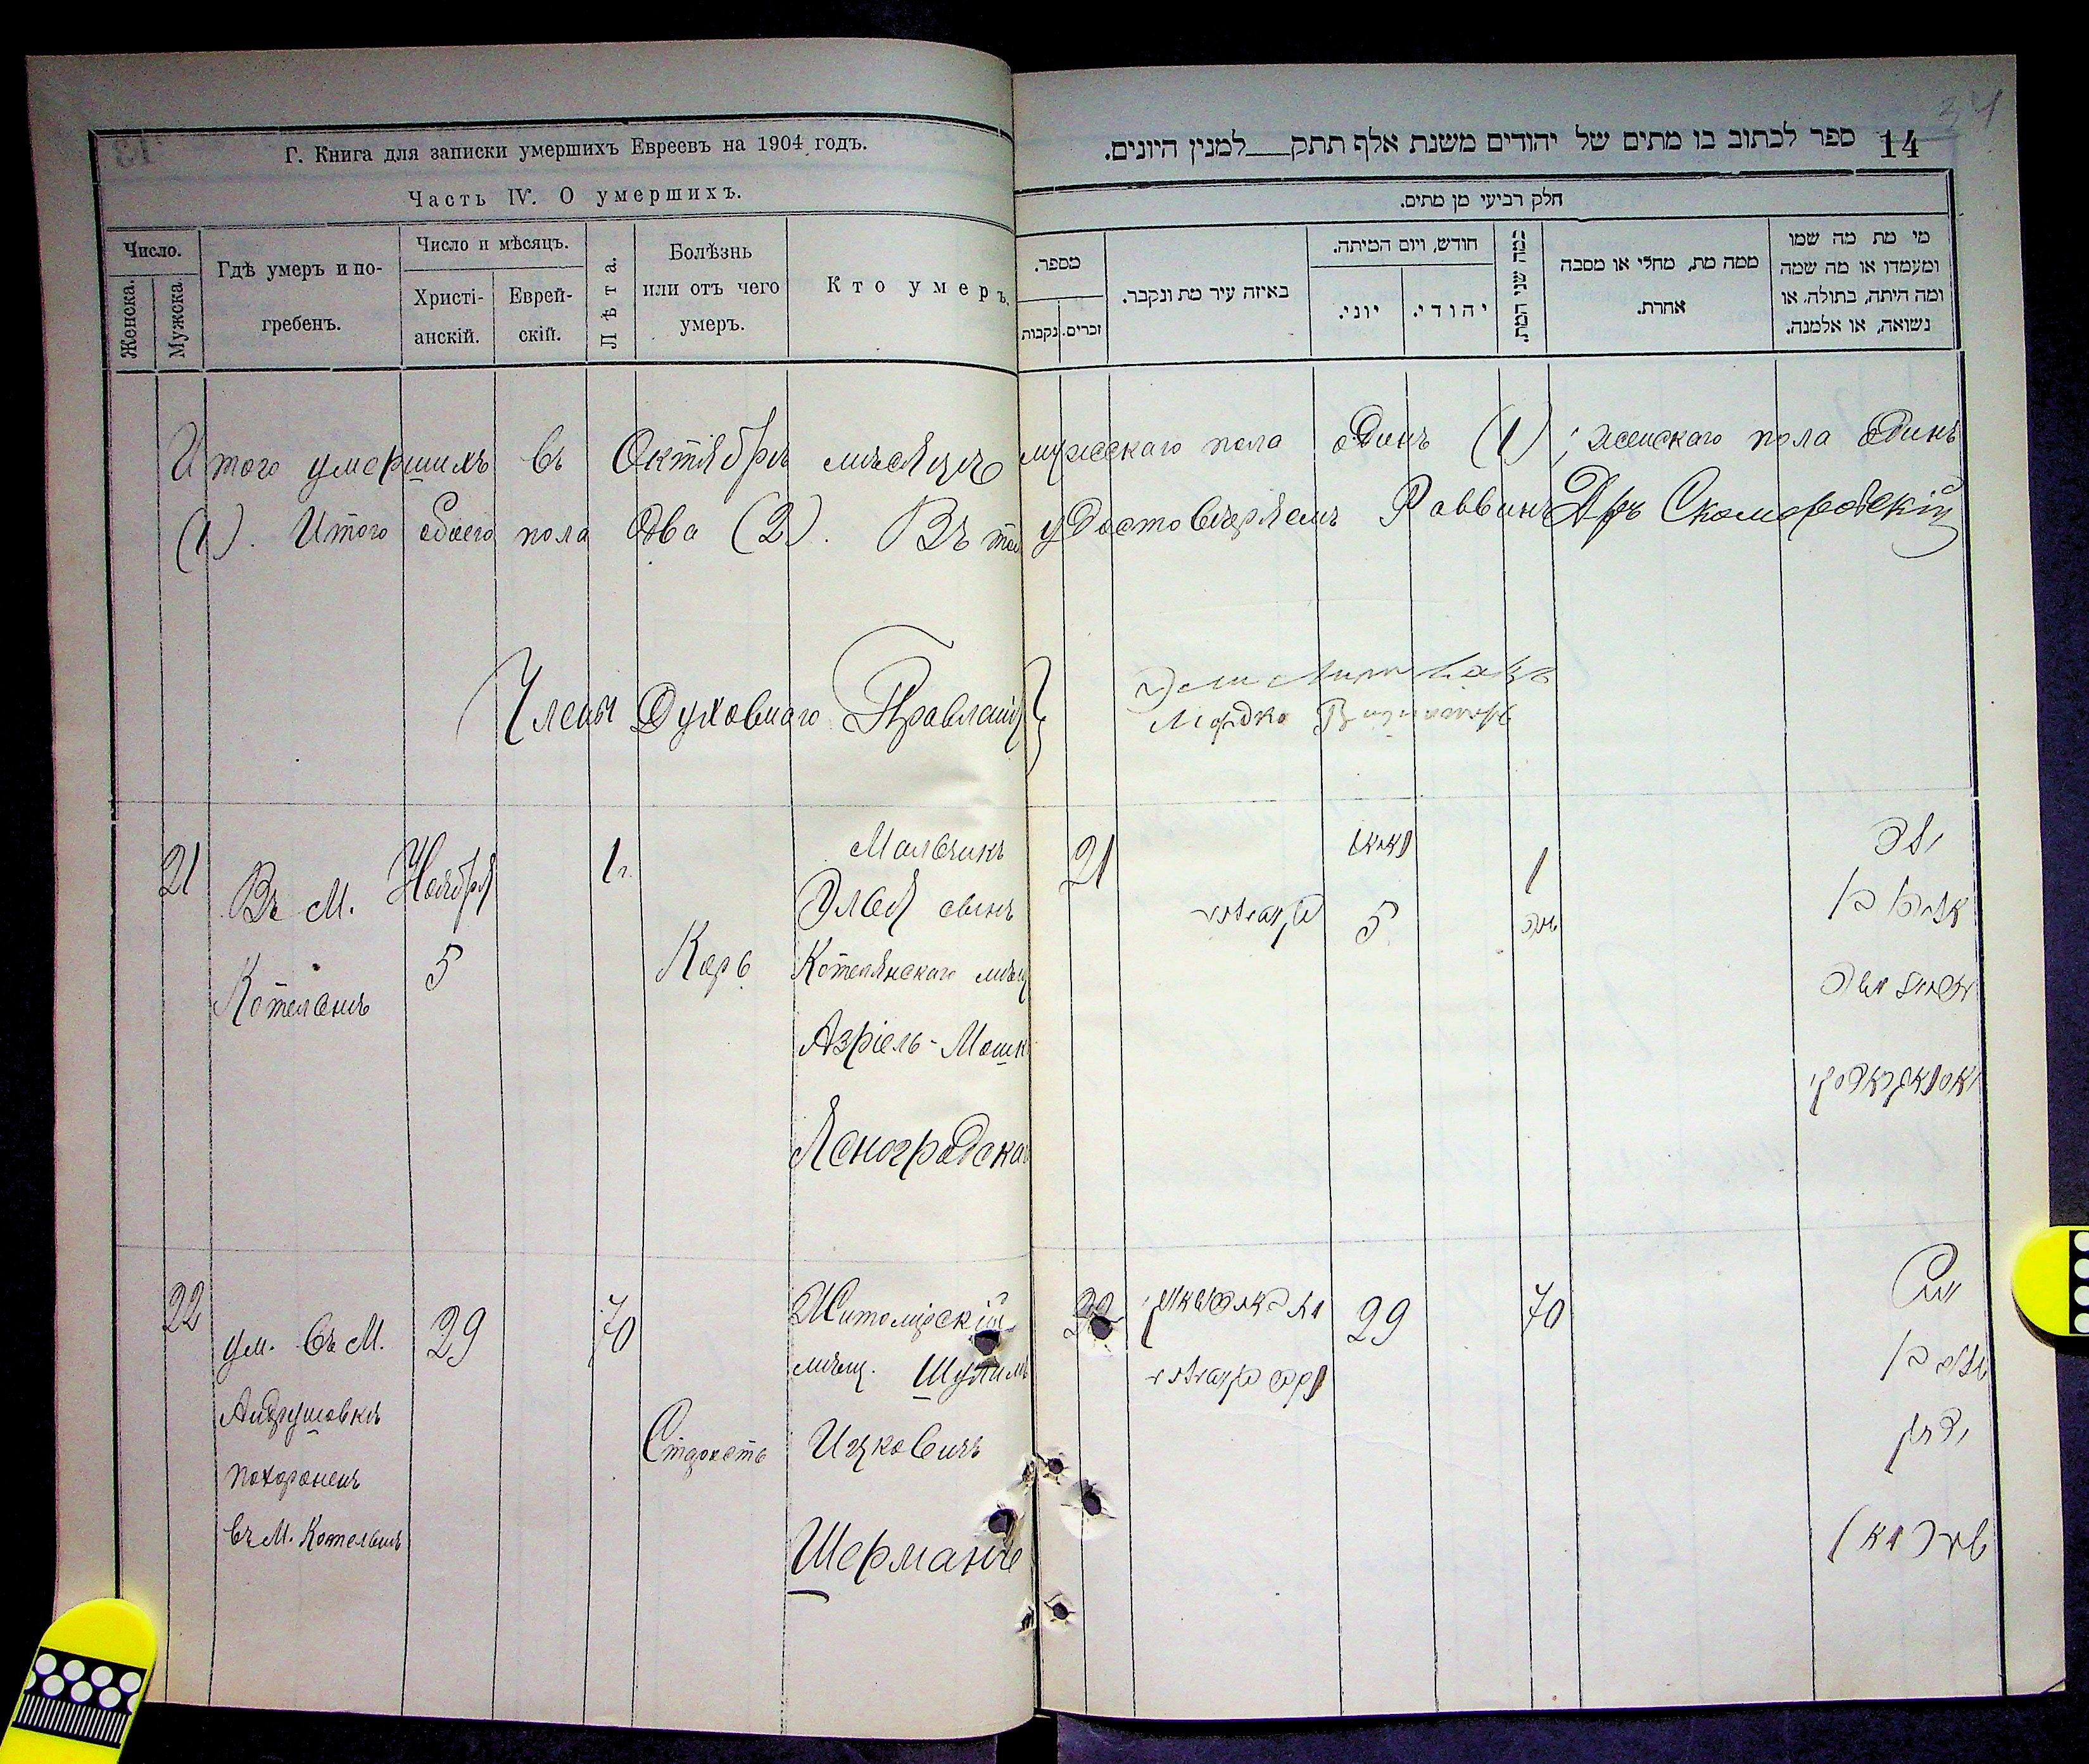 Г. Книга для записки умершихъ Евреевъ на 1904 годъ.
Часть IV. О умершихъ.
Число.
Женска.
Мужска.
Гдѣ умеръ и по-
гребенъ.
Число и мѣсяцъ.
Христі-
анскій.
Еврей-
скій.
Лѣта.
Болѣзнь
или отъ чего
умеръ.
Кто умеръ.
14
ספר לכתוב בו מתים של יהודים משנת אלף תתק___למנין היונים.
חלק רביעי מן מתים.
מספר.
נקבות
זכרים.
באיזה עיר מת ונקבר.
חודש, ויום המיתה.
יוני.
יהודי.
כמה שני המת.
ממה מת, מחלי או מסבה
אחרת.
מי מת מה שמו
ומעמדו או מה שמה
ומה היתה, בתולה, או
נשואה, או אלמנה.
Итого умершихъ въ Октябрѣ мѣсяцѣ мужескаго пола одинъ (1); женскаго пола одинъ
(1). Итого обоего пола два (2). Въ томъ удостовѣряемъ Раввинъ Скоморовскій
Члены Духовнаго Правленія
Мордко
21
Въ М.
Котельнѣ
Ноября
5
1 г.
Корь
Мальчикъ
Элья сынъ
Котелянскаго мѣщ
Азріель-Мошк
Ясноградска
21
5
1
22
ум. въ М.
Андрушовкѣ
похороненъ
въ М. Котельнѣ
29
70
Старость
Житомірскій
мѣщ. Шулимъ
Ицковичъ
Шерманъ
22
29
70
שלום
יצחק
שערמאן